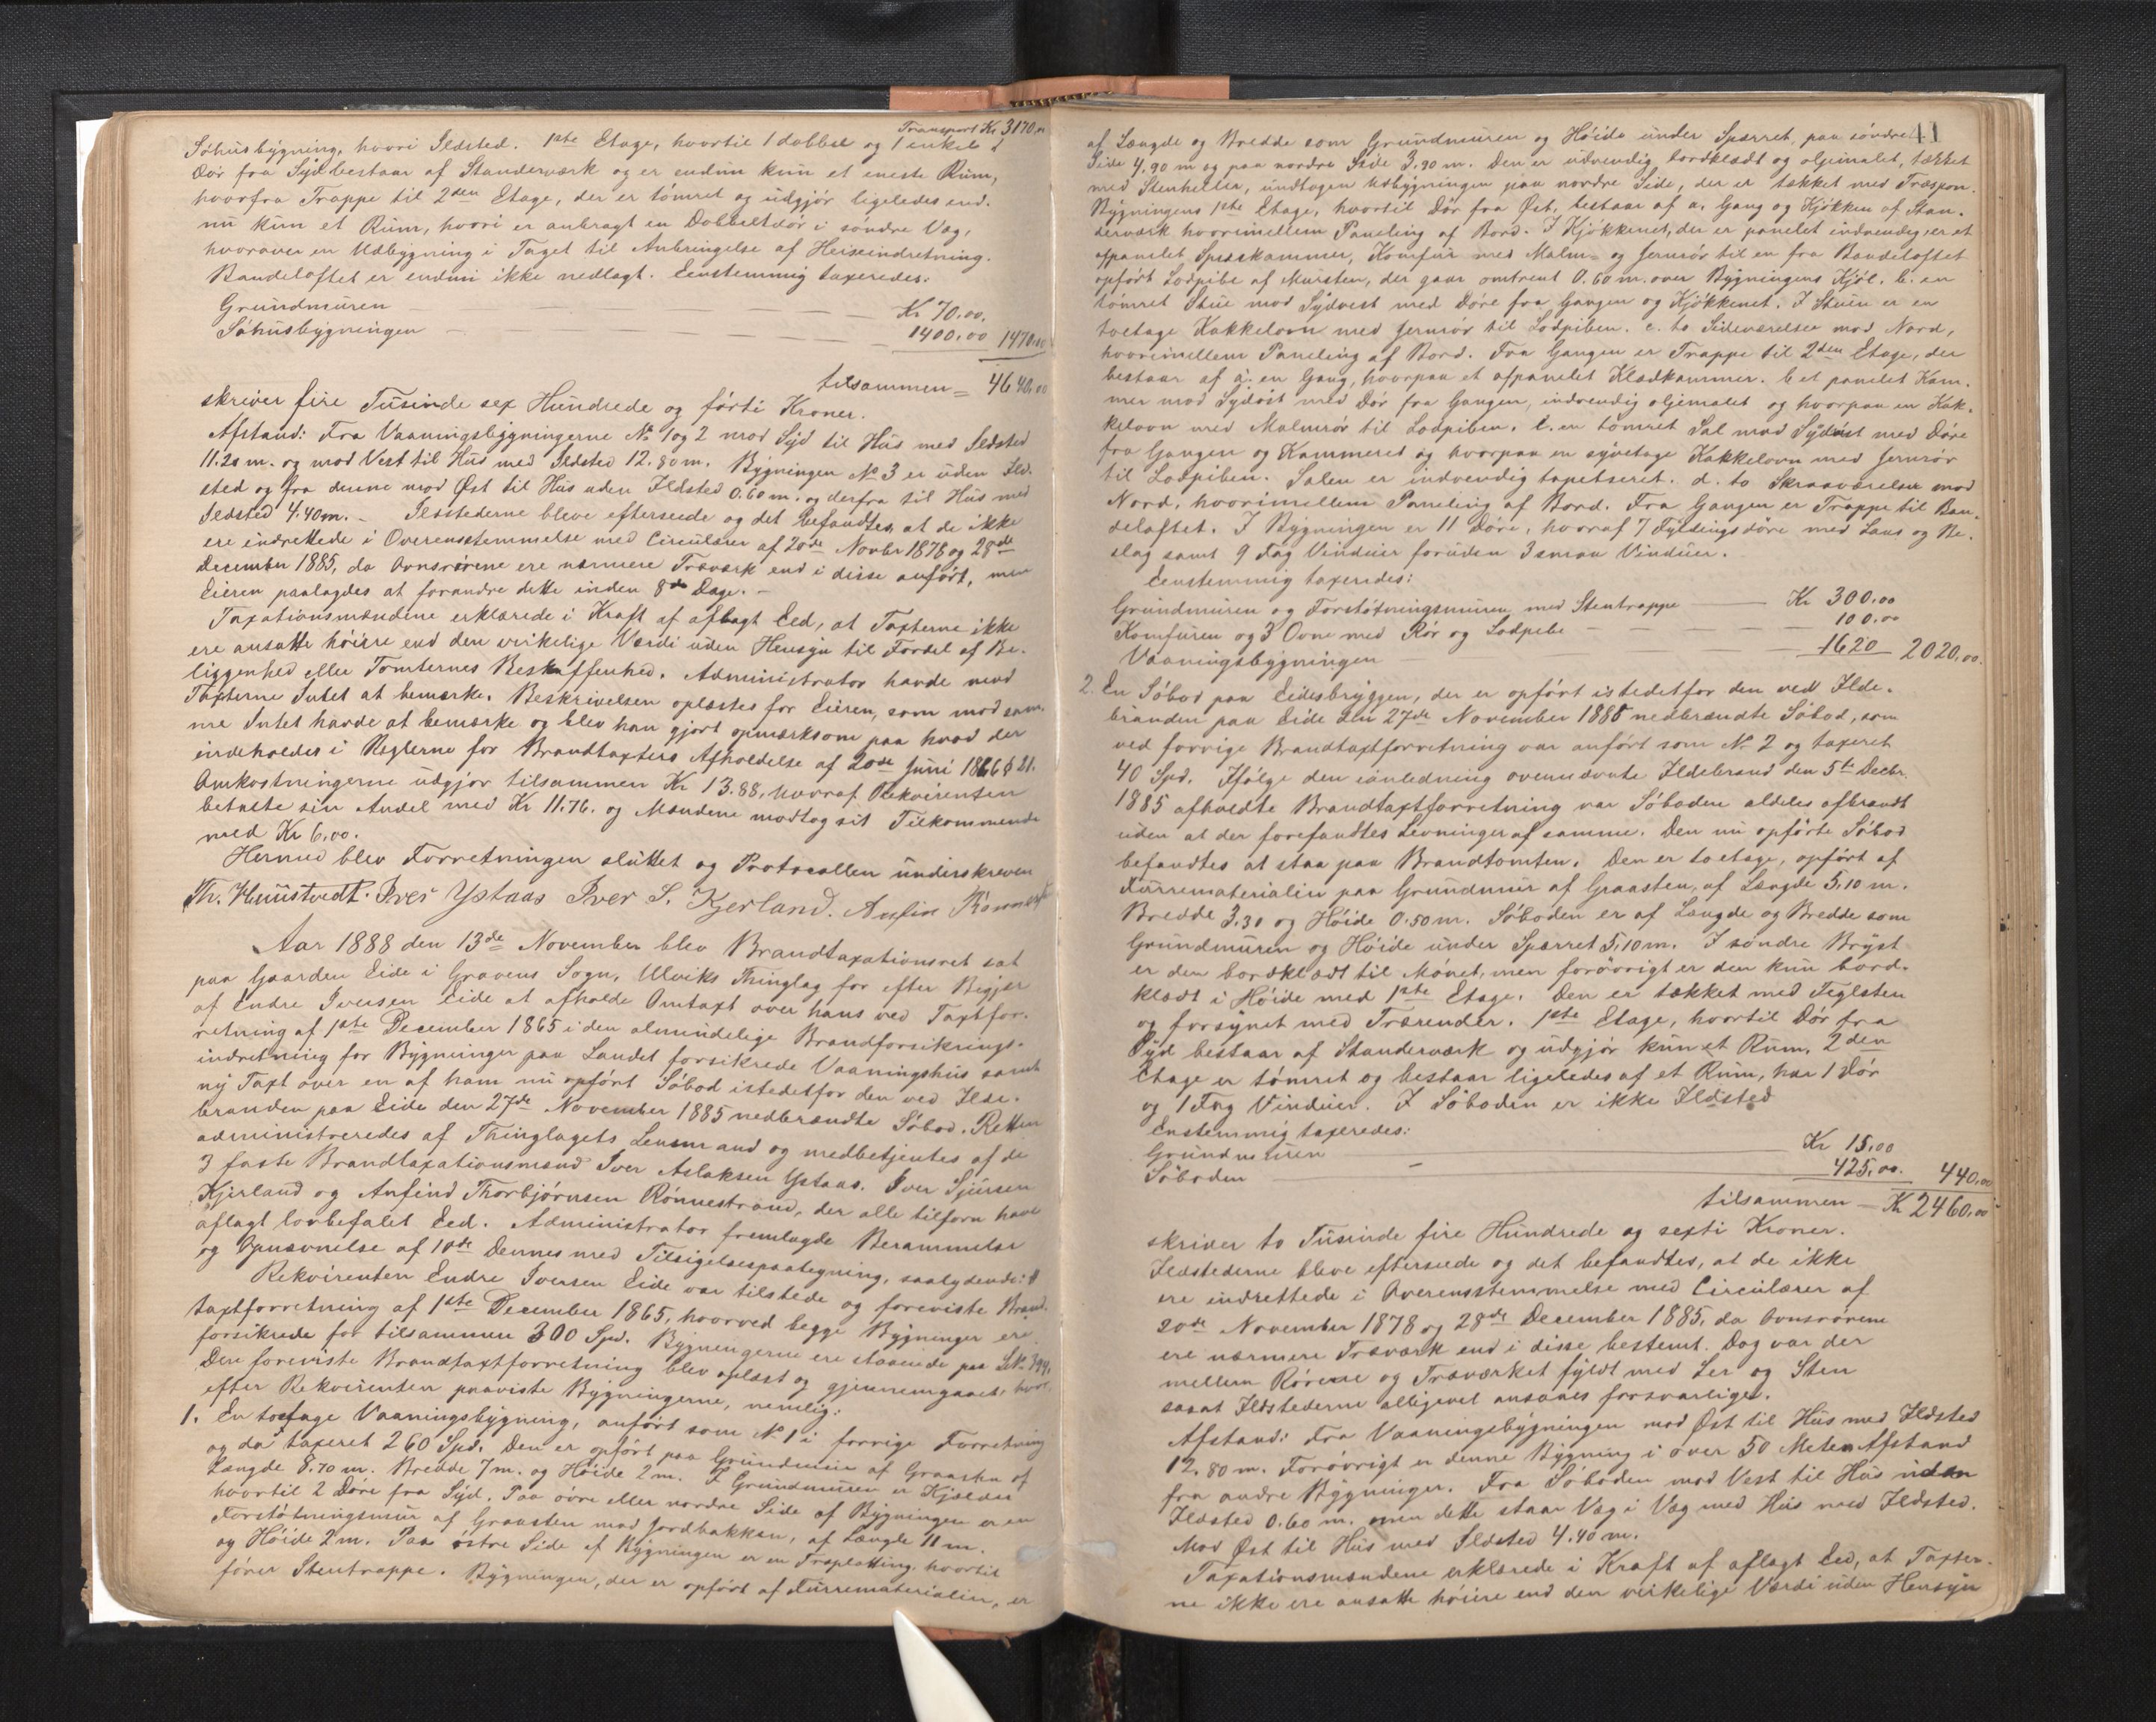 Transport Kr. 3170.
Søhusbygning, hvori Ildsted. 1ste Etage, hvortil 1 dobbel og 1 enkelt
Dør fra Syd bestaar af Standerværk og er endnu kun et eneste Rum,
hvorfra Trappe til 2den Etage, der er tømret og udgjør ligeledes end-
nu kun et Rum, hvori er anbragt en Dobbeltdør i søndre Væg,
hvorover en Udbygning i Taget til Anbringelse af Heiseindretning.
Bandeloftet er endnu ikke nedlagt. Eenstemmig taxeredes:
Grundmuren Kr 70.00.
Søhusbygningen 1400.00 1470.00
tilsammen = 4640.00
skriver fire Tusinde sex Hundrede og førti Kroner.
Afstand: Fra Vaaningsbygningerne No 1 og 2 mod Syd til Hus med Ildsted
11.20 m. og mod Vest til Hus med Ildsted 12.80 m. Bygningen No 3 er uden Ild-
sted og fra denne mod Øst til Hus uden Ildsted 0.60 m. og derfra til Hus med
Ildsted 4.40 m. – Ildstederne bleve efterseede og det befandtes, at de ikke
ere indrettede i Overensstemmelse med Circulærer af 20de Novbr 1878 og 28de
December 1885, da Ovnsrørene ere nærmere Træværk end i disse anført, men
Eieren paalagdes at forandre dette inden 8de Dage. –
Taxationsmændene erklærede i Kraft af aflagt Eed, at Taxterne ikke
ere ansatte høiere end den virkelige Værdi uden Hensyn til Fordel af Be-
liggenhed eller Tomternes Beskaffenhed. Administrator havde mod
Taxterne Intet at bemærke. Beskrivelsen oplæstes for Eieren, som mod sam-
me Intet havde at bemærke og blev han gjort opmærksom paa hvad der
indeholdes i Reglerne for Brandtaxters Afholdelse af 20de Juni 1866 § 21.
Omkostningerne udgjør tilsammen Kr 13.88, hvoraf Rekvirenten
betalte sin Andel med Kr 11.76. og Mændene modtog sit Tilkommende
med Kr 6.00.
Hermed blev Forretningen sluttet og Protocollen underskreven
Th. Huustvedt. Iver Ystaas Iver S. Kjerland. Anfin Rønnest
Aar 1888 den 13de November blev Brandtaxationsret sat
paa Gaarden Eide i Gravens Sogn, Ulviks Thinglag for efter Begjær
af Endre Iversen Eide at afholde Omtaxt over hans ved Taxtfor-
retning af 1ste December 1865 i den almindelige Brandforsikrings-
indretning for Bygninger paa Landet forsikrede Vaaningshus samt
ny Taxt over en af ham nu opført Søbod istedetfor den ved Ilde-
branden paa Eide den 27de November 1885 nedbrændte Søbod. Retten
administreredes af Thinglagets Lensmand og medbetjentes af de
3 faste Brandtaxationsmænd Iver Aslaksen Ystaas. Iver Sjursen
Kjerland og Anfind Thorbjørnsen Rønnestrand, der alle tilforn have
aflagt lovbefalet Eed. Administrator fremlagde Berammelse
og Opnævnelse af 10de Dennes med Tilsigelsespaategning, saalydende:
Rekvirenten Endre Iversen Eide var tilstede og foreviste Brand-
taxtforretning af 1ste December 1865, hvorved begge Bygninger ere
forsikrede for tilsammen 300 Spd. Bygningerne ere staaende paa
Den foreviste Brandtaxtforretning blev oplæst og gjennemgaaet, hvor-
efter Rekvirenten paaviste Bygningerne, nemlig:
1. En toetage Vaaningsbygning, anført som No 1 i forrige Forretning
og da taxeret 260 Spd. Den er opført paa Grundmur af Graasten af
Længde 8.70 m. Bredde 7 m. og Høide 2 m. I Grundmuren er Kjælder
hvortil 2 Døre fra Syd. Paa øvre eller nordre Side af Bygningen er en
Forstøtningsmur af Graasten mod Jordbakken, af Længde 11 m.
og Høide 2 m. Paa østre Side af Bygningen er en Traplatting, hvortil
fører Stentrappe. Bygningen, der er opført af Furrematerialier, er
41
af Længde og Bredde som Grundmuren og Høide under Spærret paa søndre
Side 4.90 m og paa nordre Side 3.90 m. Den er udvendig bordklædt og oljemalet, tækket
med Stenheller, undtagen Udbygningen paa nordre Side, der er tækket med Træspon.
Bygningens 1ste Etage, hvortil Dør fra Øst, bestaar af a. Gang og Kjøkken af Stan-
derværk hvorimellem Paneling af Bord. I Kjøkkenet, der er panelet indvendig, er et
afpanelet Spisekammer, Komfur med Malm- og Jernrør til en fra Bandeloftet
opført Lodpibe af Mursten, der gaar omtrent 0.60 m. over Bygningens Kjøl. b. en
tømret Stue mod Sydvest med Døre fra Gangen og Kjøkkenet. I Stuen er en
toetage Kakkelovn med Jernrør til Lodpiben. c. to Sideværelser mod Nord,
hvorimellem Paneling af Bord. Fra Gangen er Trappe til 2den Etage, der
bestaar af a. en Gang, hvorpaa et afpanelet Klædkammer. b et panelet Kam-
mer mod Sydøst med Dør fra Gangen, indvendig oljemalet og hvorpaa en Kak-
kelovn med Malmrør til Lodpiben. c. en tømret Sal mod Sydvest med Døre
fra Gangen og Kammeret og hvorpaa en syvetage Kakkelovn med Jernrør
til Lodpiben. Salen er indvendig tapetseret. d. to Skraaværelser mod
Nord, hvorimellem Paneling af Bord. Fra Gangen er Trappe til Ban-
deloftet. I Bygningen er 11 Døre, hvoraf 7 Fyldingsdøre med Laas og Be-
slag samt 9 Fag Vinduer foruden 3 smaa Vinduer.
Eenstemmig taxeredes:
Grundmuren og Forstøtningsmuren med Stentrappe Kr 300.00
Komfuren og 3 Ovne med Rør og Lodpibe 100.00
Vaaningsbygningen 1620 2020.00.
2. En Søbod paa Eidesbryggen, der er opført istedetfor den ved Ilde-
branden paa Eide den 27de November 1885 nedbrændte Søbod, som
ved forrige Brandtaxtforretning var anført som No 2 og taxeret
40 Spd. Ifølge den i anledning ovennævnte Ildebrand den 5te Decbr.
1885 afholdte Brandtaxtforretning var Søboden aldeles afbrændt
uden at der forefandtes Levninger af samme. Den nu opførte Søbod
befandtes at staa paa Brandtomten. Den er toetage, opført af
Furrematerialier paa Grundmur af Graasten, af Længde 5.10 m.
Bredde 3.30 og Høide 0.50 m. Søboden er af Længde og Bredde som
Grundmuren og Høide under Spærret 5.10 m. I søndre Bryst
er den bordklædt til Mønet, men forøvrigt er den kun bord-
klædt i Høide med 1ste Etage. Den er tækket med Teglsten
og forsynet med Trærender. 1ste Etage, hvortil Dør fra
Syd bestaar af Standerværk og udgjør kun et Rum. 2den
Etage er tømret og bestaar ligeledes af et Rum, har 1 Dør
og 1 Fag Vinduer. I Søboden er ikke Ildsted
Enstemmig taxeredes:
Grundmuren Kr 15.00
Søboden 425.00. 440.00
tilsammen – Kr 2460.00
skriver to Tusinde fire Hundrede og sexti Kroner.
Ildstederne bleve efterseede og det befandtes, at de ikke
ere indrettede i Overensstemmelse med Circulærer af
20de November 1878 og 28de December 1885, da Ovnsrørene
ere nærmere Træværk end i disse bestemt. Dog var der
mellem Rørene og Træværket fyldt med Ler og Sten
saaat Ildstederne alligevel ansaaes forsvarlige.
Afstand: Fra Vaaningsbygningen mod Øst til Hus med Ildsted
12.80 m. Forøvrigt er denne Bygning i over 50 Meters Afstand
fra andre Bygninger. Fra Søboden mod Vest til Hus uden
Ildsted 0.60 m. men dette staar Væg i Væg med Hus med Ildsted.
Mod Øst til Hus med Ildsted 4.40 m.
Taxationsmændene erklærede i Kraft af aflagt Eed, at Taxter-
ne ikke ere ansatte høiere end den virkelige Værdi uden Hensyn